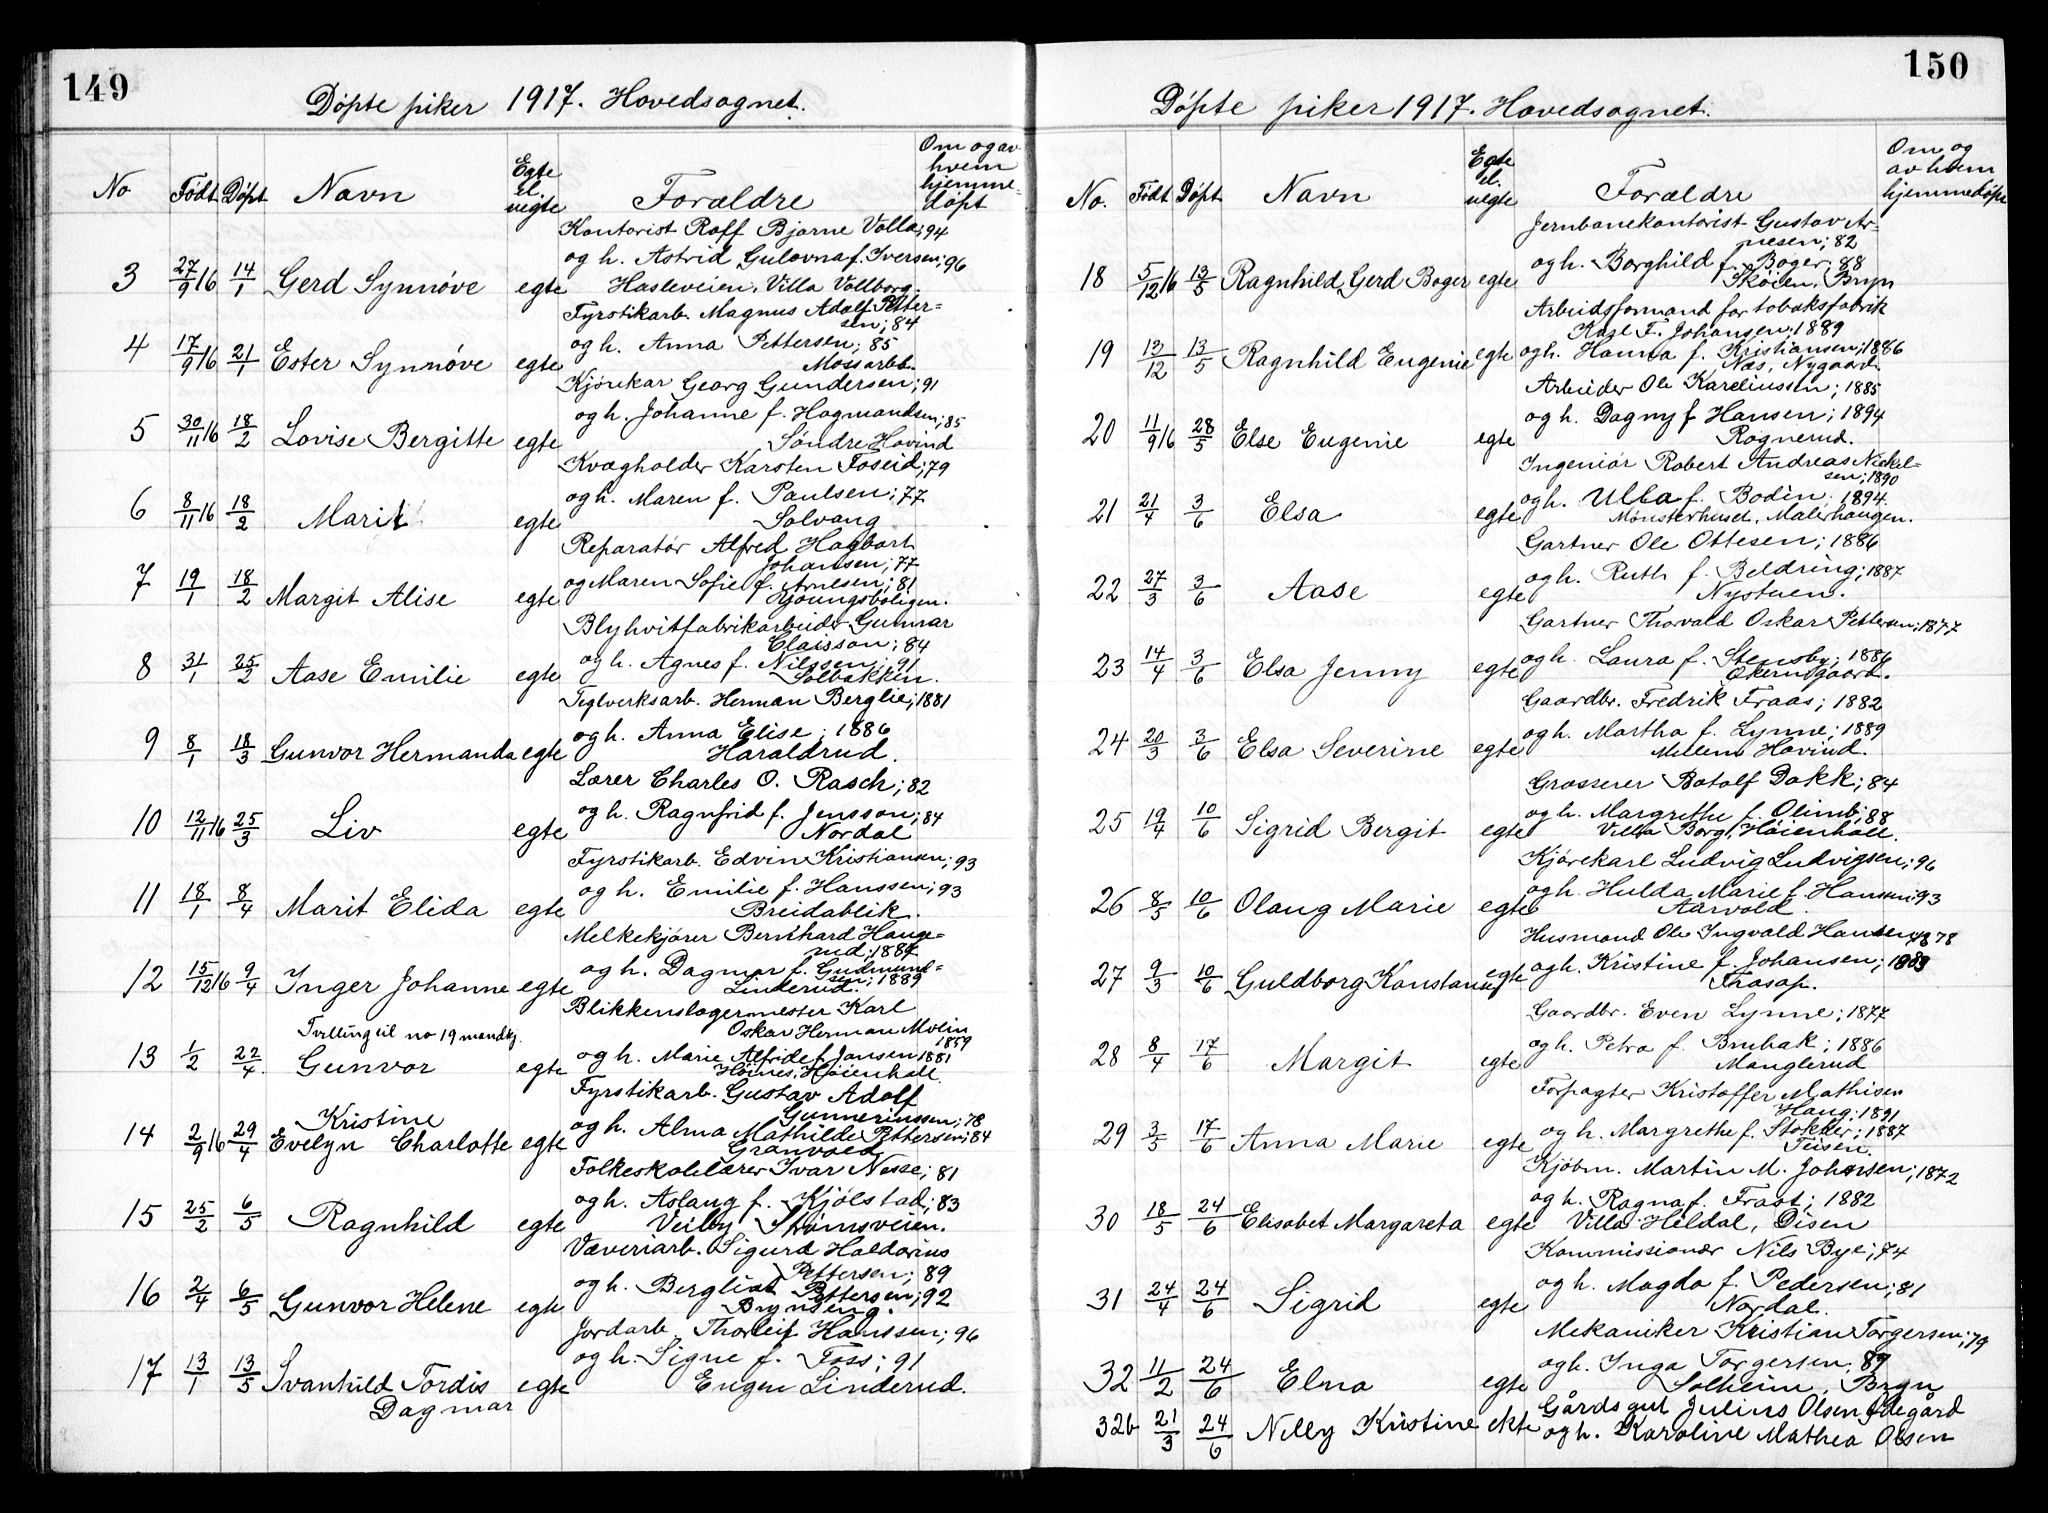 149
Døpte piker 1917. Hovedsognet.
No Født Døpt Navn Egte el. uegte Forældre Om og av hvem hjemmedøpt
Kontorist Roff Bjarne Volla; 94
3 27/9 16 14/1 Gerd Synnøve egte og h. Astrid Gulovna f. Iversen; 96
Hasleveien, Villa Vollborg.
Fyrstikarb. Magnus Adolf Petter-
sen; 84
4 17/9 16 21/1 Ester Synnøve egte og h. Anna Pettersen; 85
Mossarbb.
Kjørekar Georg Gundersen; 91
5 30/11 16 18/2 Lovise Bergitte egte og h. Johanne f. Hagmandsen; 85
Søndre Hovind
Kvægholder Karsten Foseid; 79
6 8/11 16 18/2 Marit egte og h. Maren f. Paulsen; 77
Solvang
Reparatør Alfred Hagbart
Johansen; 77
7 19/1 18/2 Margit Alise egte og Maren Sofie f. Arnesen; 81
Youngsboligen.
Blyhvitfabrikarbeider Gunnar
Claisson; 84
8 31/1 25/2 Aase Emilie egte og h. Agnes f. Nilssen; 91
Solbakken.
Teglverksarb. Herman Berglie; 1881
9 8/1 18/3 Gunvor Hermanda egte og h. Anna Elise; 1886
Haraldrud.
Lærer Charles O. Rasch; 82
10 12/11 16 25/3 Liv egte og h. Ragnfrid f. Jensson; 84
Nordal
Fyrstikarb. Edvin Kristiansen; 93
11 18/1 8/4 Marit Elida egte og h. Emilie f. Hanssen; 93
Breidablik.
Melkekjører Bernhard Hauge-
rud; 1887
12 15/12 16 9/4 Inger Johanne egte og h. Dagmar f. Gudmund-
sen; 1889
Linderud.
Blikkenslagermester Karl
Oskar Herman Moein
1859
Tvilling til no 19 mandkj.
13 1/2 22/4 Gunvor egte og h. Marie Alfride f. Jansen 1881
Høines, Høienhall.
Fyrstikarb. Gustav Adolf
Gunneriussen; 78
Kristine
14 2/9 16 29/4 Evelyn Charlotte egte og h. Alma Mathilde Pettersen; 84
Granvold
Folkeskolelærer Ivar Nesse; 81
15 25/2 6/5 Ragnhild egte og h. Aslaug f. Kjølstad; 83
Veilby Strømsveien.
Væveriarb. Sigurd Haldorius
Pettersen; 89
16 2/4 6/5 Gunvor Helene egte og h. Bergliot Pettersen; 92
Brynseng.
Jordarb. Thorleif Hanssen; 96
17 13/1 13/5 Svanhild Tordis egte og h. Signe f. Foss; 91
Dagmar
Engen Linderud.
150
Døpte piker 1917. Hovedsognet.
No. Født Døpt Navn Egte el. uegte Forældre Om og av hvem hjemmedøpt
Jernbanekontorist Gustav Ar-
nesen; 82
18 5/12 16 13/5 Ragnhild Gerd Boger egte og h. Borghild f. Boger; 88
Skøien, Bryn
Arbeidsformand for tobaksfabrik
Karl F. Johansen; 1889
19 13/12 13/5 Ragnhild Eugenie egte og h. Hanna f. Kristiansen; 1886
Næs, Nygaard.
Arbeider Ole Kareliussen; 1885
20 11/9 16 28/5 Else Eugenie egte og h. Dagny f Hansen; 1894
Rognerud.
Ingeniør Robert Andreas Nickel-
sen; 1890
21 21/4 3/6 Elsa egte og h. Ulla f. Bodin. 1894.
Mønsterhuset, Malerhaugen.
Gartner Ole Ottesen; 1886
22 27/3 3/6 Aase egte og h. Ruth f. Beldring; 1887
Nystuen.
Gartner Thorvald Oskar Pettersen; 1877
23 14/4 3/6 Elsa Jenny egte og h. Laura f. Stensby; 1886
Økern gaard.
Gaardbr. Fredrik Fraas; 1882
24 20/3 3/6 Elsa Severine egte og h. Martha f. Lynne; 1889
Mellem Hovind.
Grosserer Botolf Dokk; 84
25 19/4 10/6 Sigrid Bergit egte og h. Margrethe f. Olimb; 88
Villa Borg, Høienhall.
Kjørekarl Ludvig Ludvigsen; 96
26 8/5 10/6 Olaug Marie egte og h. Hulda Marie f. Hanssen; 93
Aarvold.
Husmand Ole Ingvald Hansen; 78
27 9/3 10/6 Guldborg Konstanse egte og h. Kristine f. Johansen; 1883
Frasop.
Gaardbr. Even Lynne; 1877
28 8/4 17/6 Margit egte og h. Petra f. Brubak; 1886
Manglerud
Forpagter Kristoffer Mathisen
Haug; 1891
29 3/5 17/6 Anna Marie egte og h. Margrethe f. Stokker; 1887
Teisen.
Kjøbm. Martin M. Johansen; 1872
30 18/5 24/6 Elisabet Margareta egte og h. Ragna f. Frost; 1882
Villa Heldal, Disen
Kommissionær Nils Bye; 74
31 24/4 24/6 Sigrid egte og h. Magda f. Pedersen; 81
Nordal.
Mekaniker Kristian Torgersen; 79
32 11/2 24/6 Elna egte og h. Inga Torgersen. 89
Solheim, Bryn
Gårdsgut Julius Olsen Ødegård
32b 21/3 24/6 Nelly Kristine ekte og h. Karoline Mathea Olsen